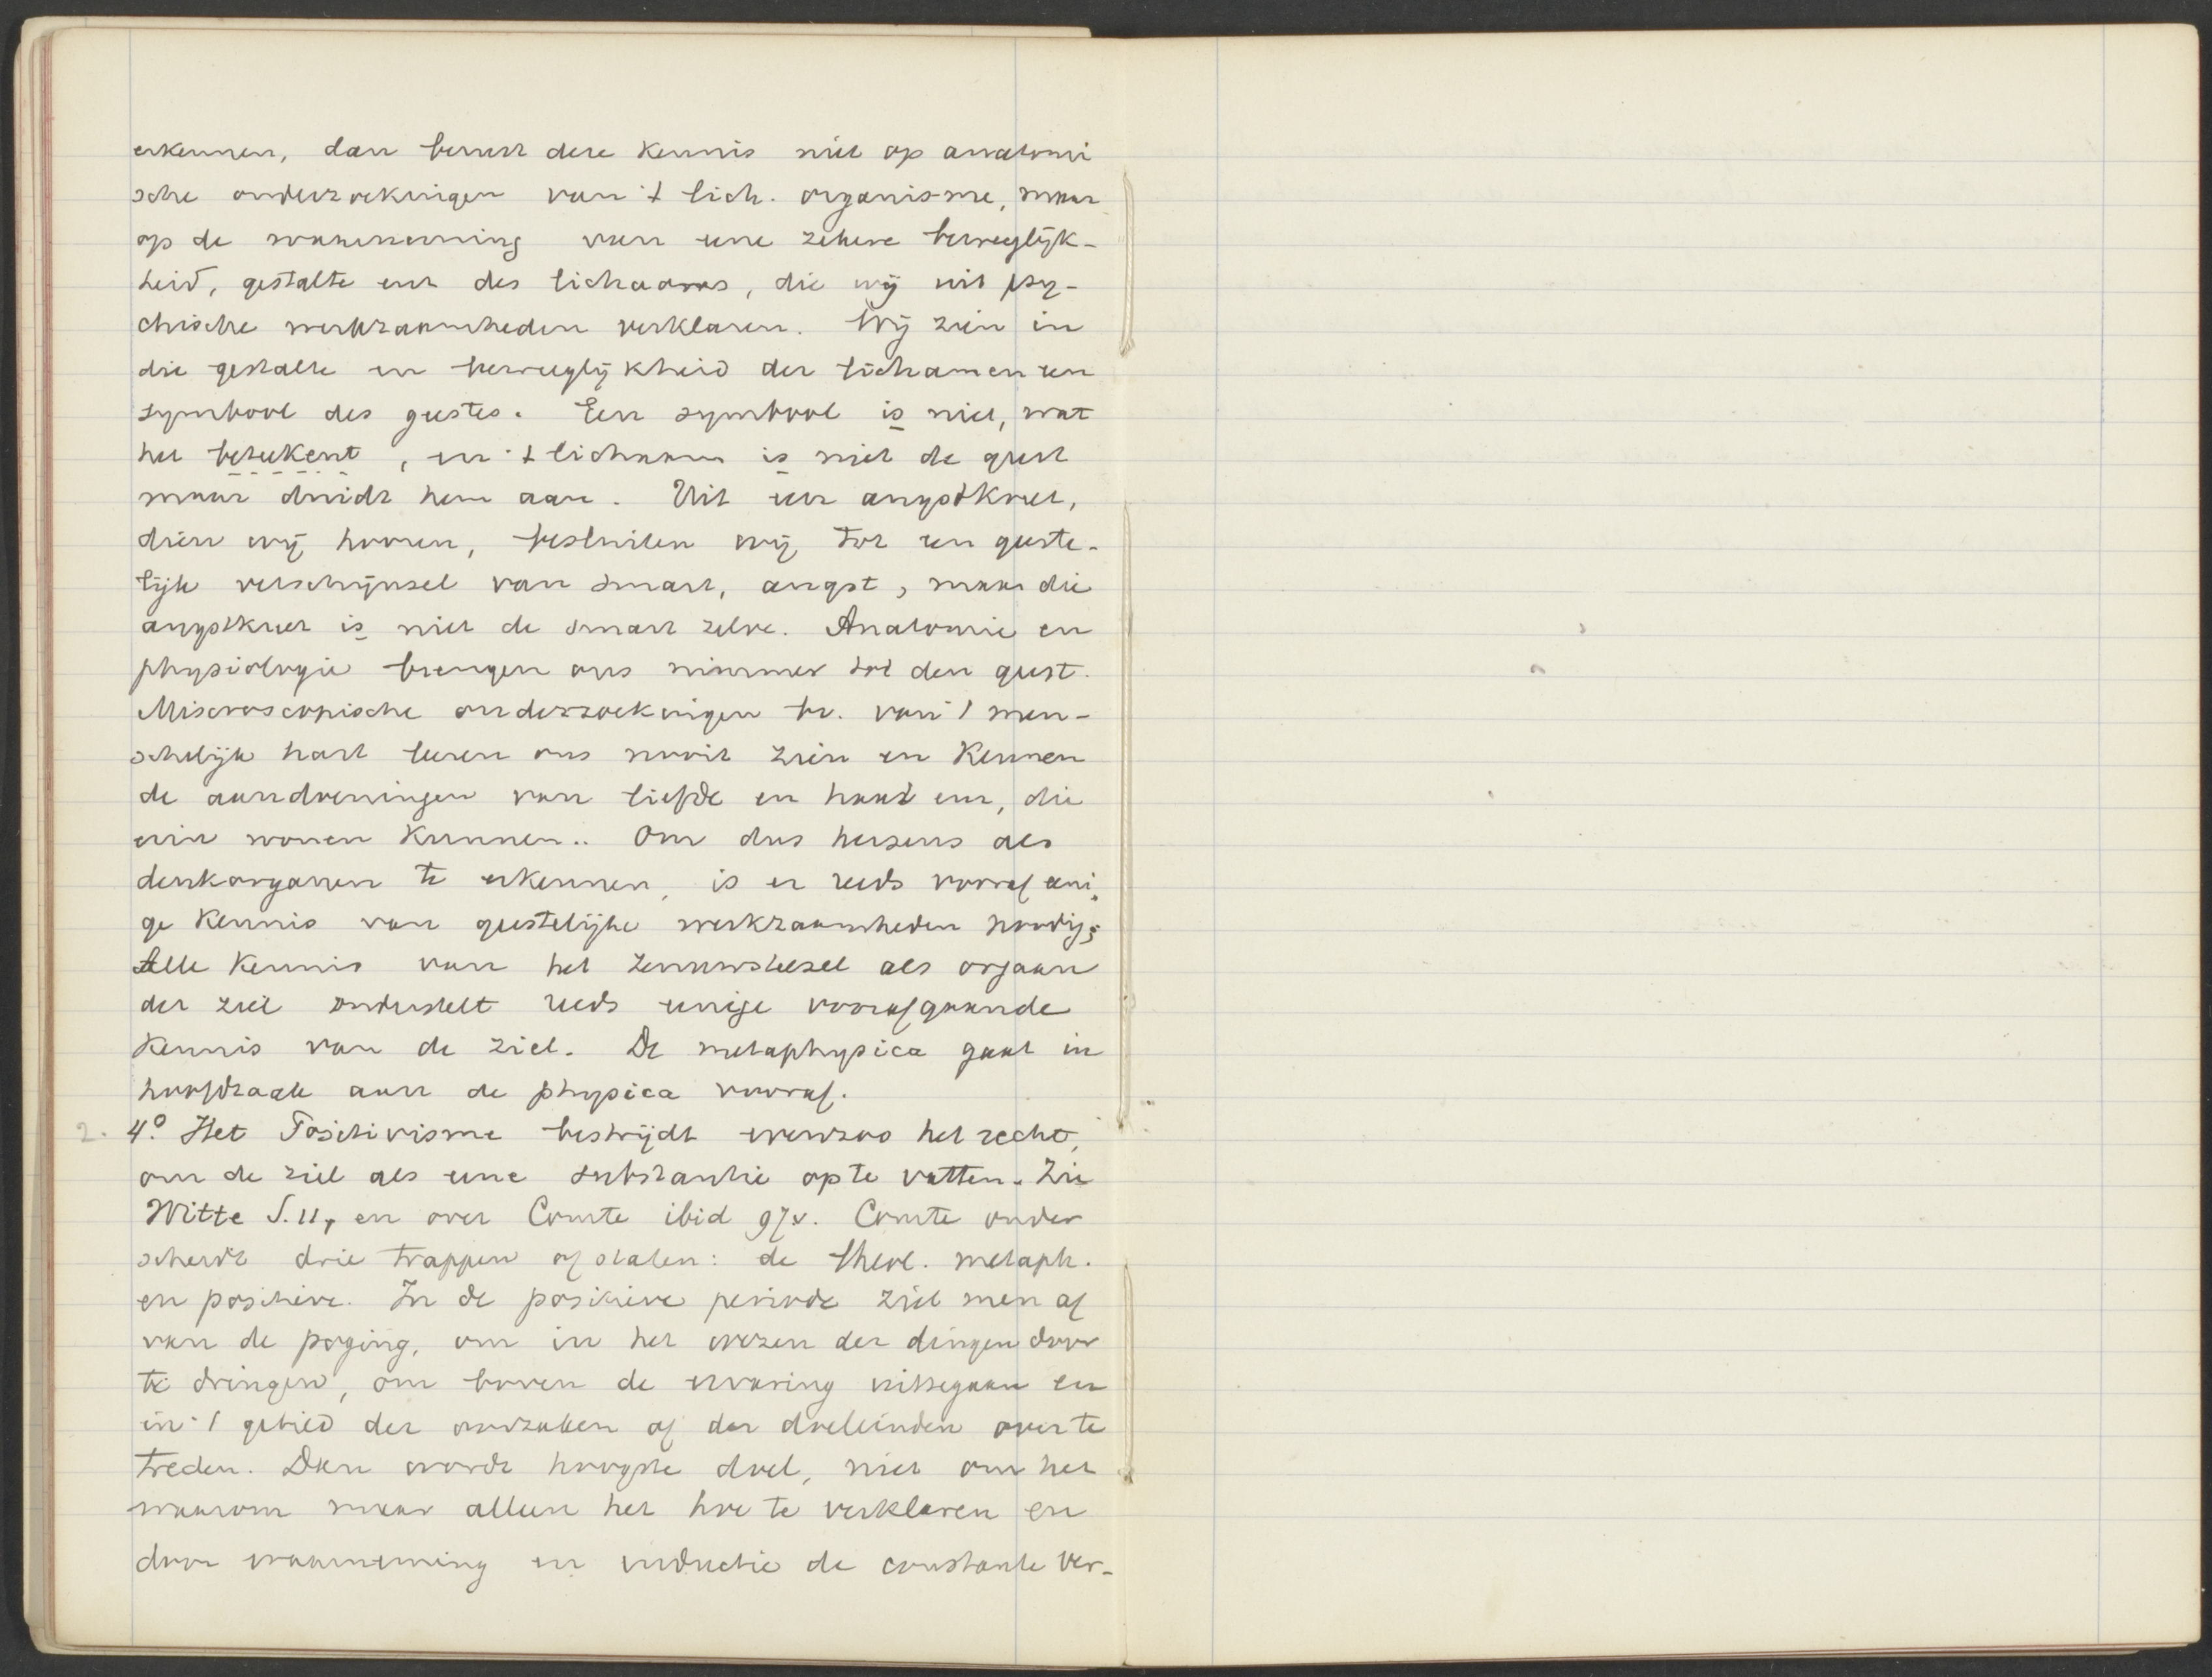 erkennen, dan berust deze kennis niet op anatomi
sche onderzoekingen van 't lich. organisme, maar
op de waarneming van eene zekere beweeglijk-
heid, gestalte enz des lichaams, die wij uit psy-
chische werkzaamheden verklaren. Wij zien in
die gestalte en beweeglijkheid der lichamen een
symbool des geestes. Een symbool is niet, wat
het beteekent, en 't lichaam is niet de geest
maar duidt hem aan. Uit een angstkreet,
dien wij hooren, besluiten wij tot een geeste-
lijk verschijnsel van smart, angst, maar die
angstkreet is niet de smart zelve. Anatomie en
physiologie brengen ons nimmer tot den geest.
Miscroscopische onderzoekingen bv. van 't men-
schelijk hart leeren ons nooit zien en kennen
de aandoeningen van liefde en haat enz, die
erin wonen kunnen.. Om dus hersens als
denkorganen te erkennen, is er reeds vooraf eeni
ge kennis van geestelijke werkzaamheden noodig;
Alle kennis van het zenuwstelsel als orgaan
der ziel onderstelt reeds eenige voorafgaande
kennis van de ziel. De metaphysica gaat in
hoofdzaak aan de physica vooraf.
2. 4.° Het Positivisme bestrijdt evenzoo het recht,
om de ziel als eene substantie op te vatten. Zie
Witte S. 11, en over Comte ibid 97v. Comte onder
scheidt drie trappen of staten: de theol. metaph.
en positieve. In de positieve periode ziet men af
van de poging, om in het wezen der dingen door
te dringen, om boven de ervaring uittegaan en
in 't gebied der oorzaken of der doeleinden over te
treden. Dan wordt hoogste doel, niet om het
waarom maar alleen het hoe te verklaren en
door waarneming en inductie de constante ver-